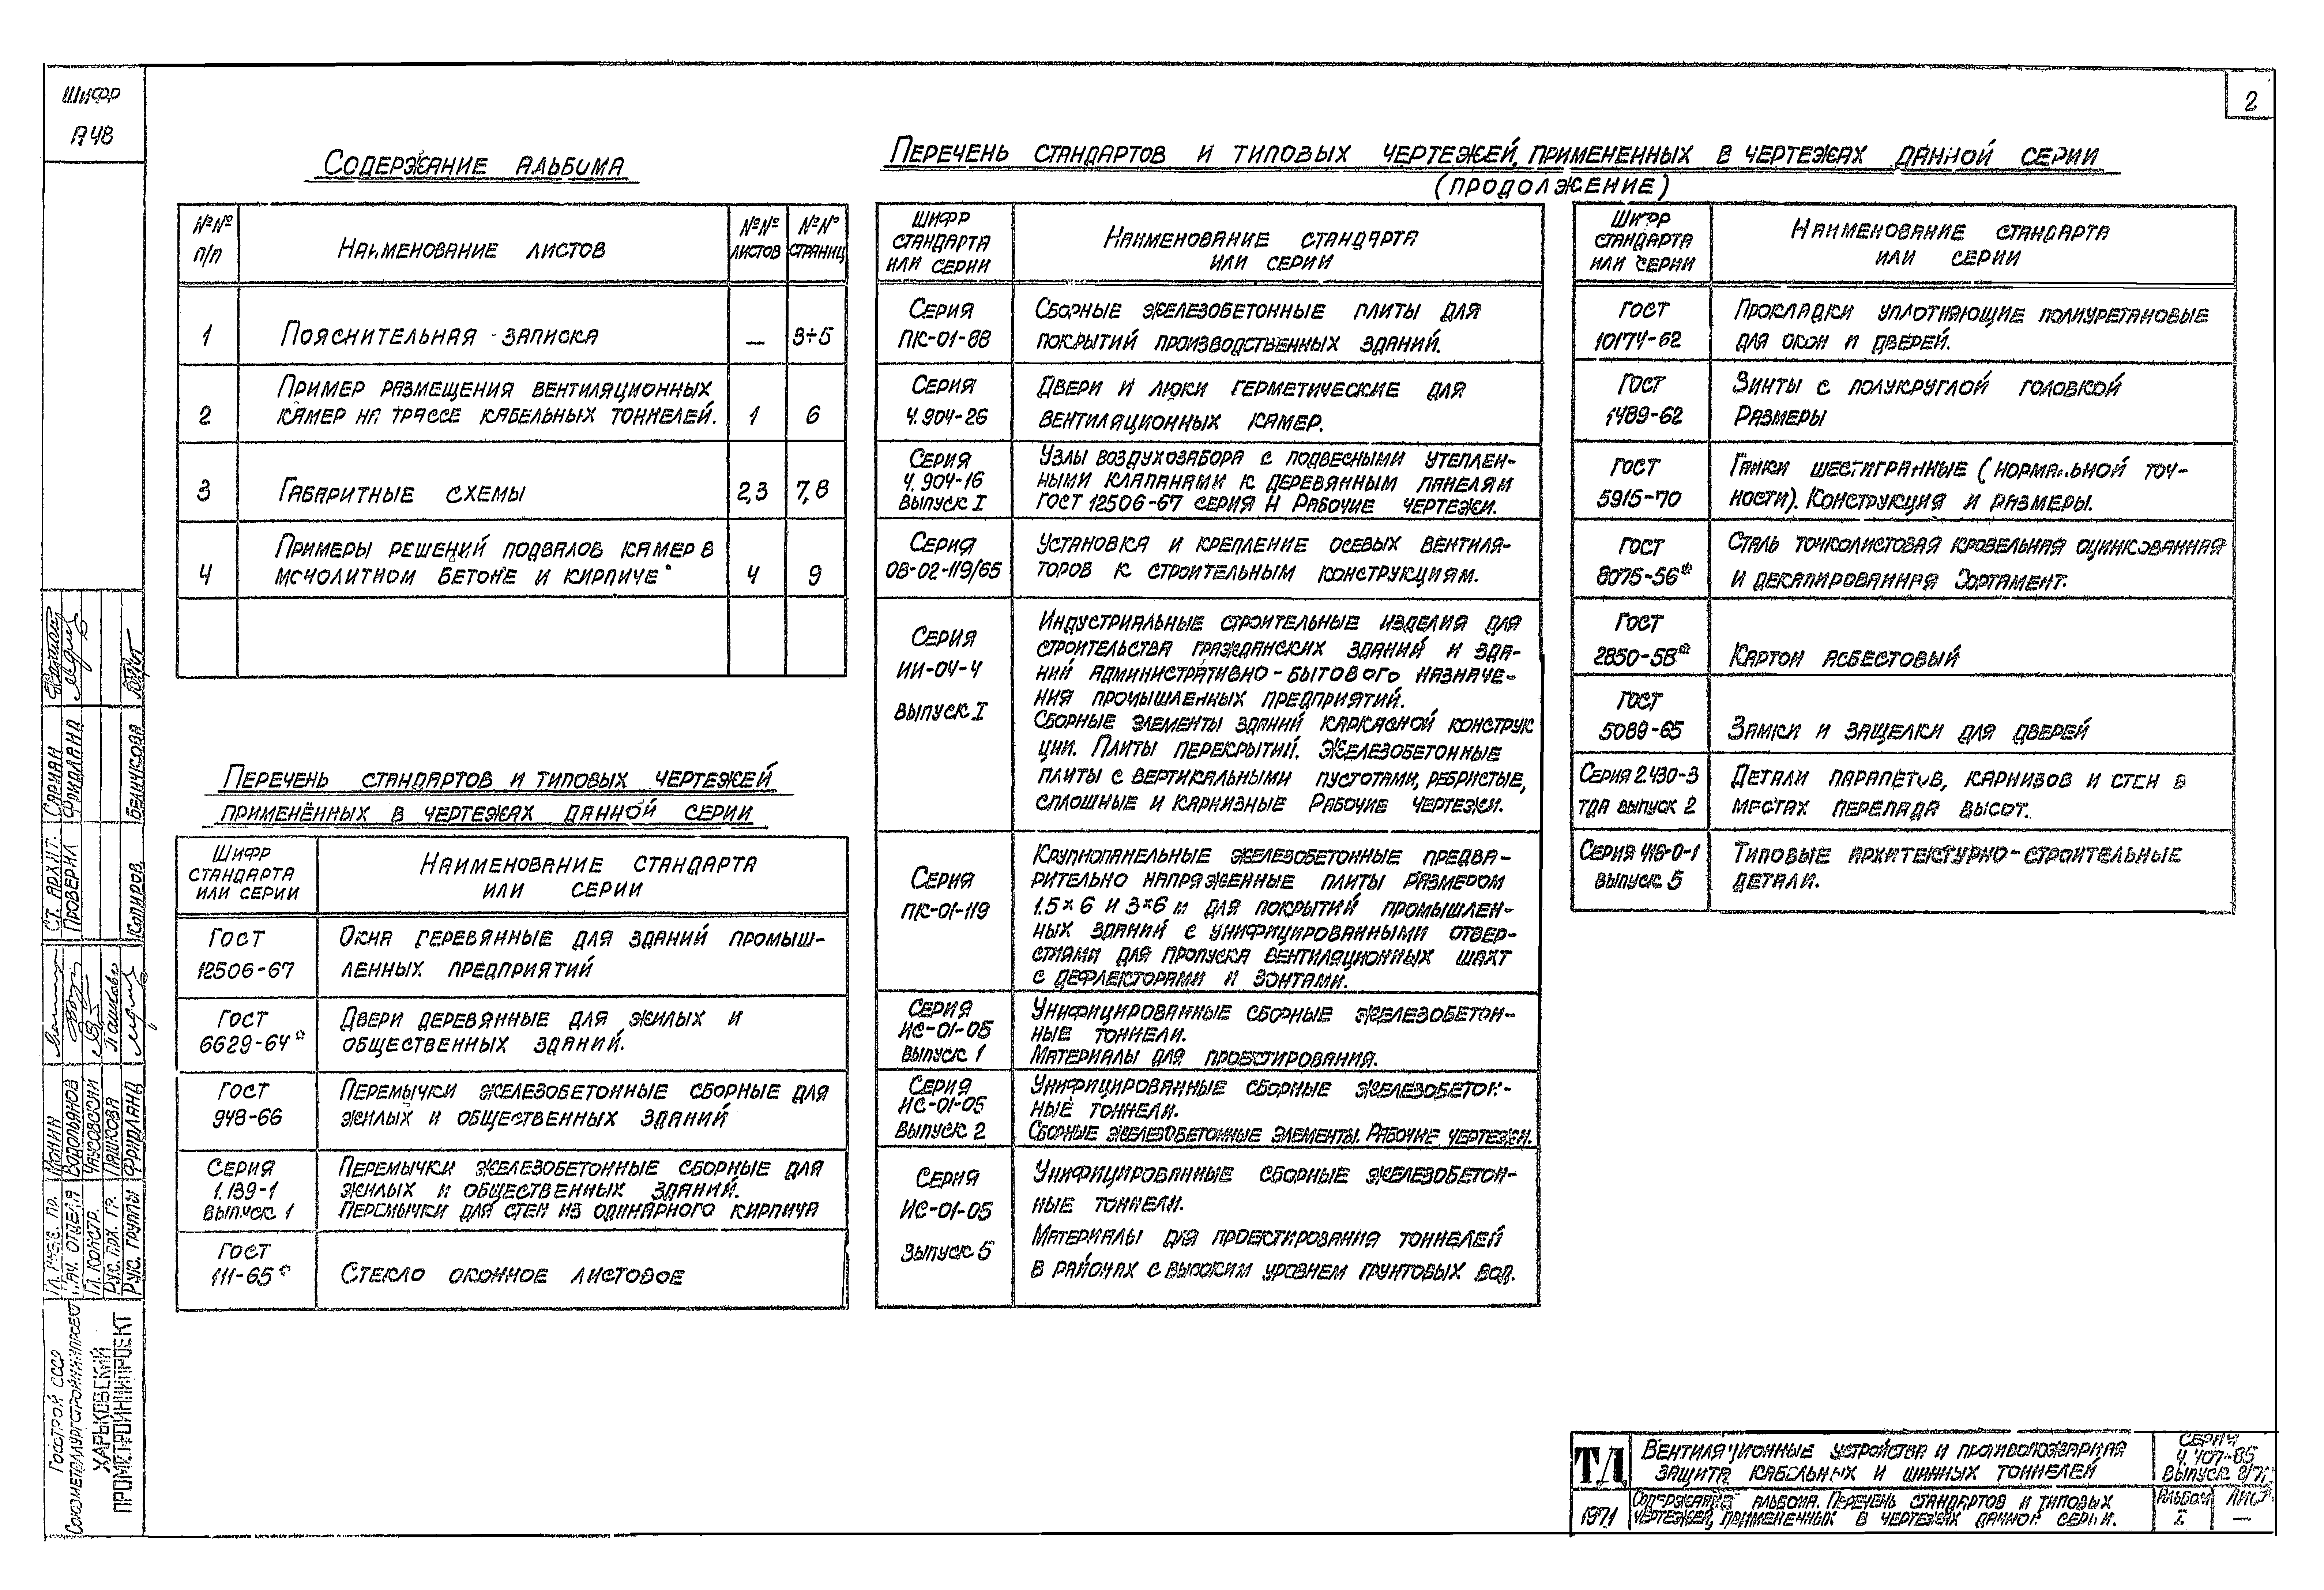 Шифр
А48
2
Содержание альбома
№№ п/п
Наименование листов
№№ листов
№№ страниц
1
Пояснительная записка
—
3÷5
2
Пример размещения вентиляционных
камер на трассе кабельных тоннелей.
1
6
3
Габаритные схемы
2,3
7,8
4
Примеры решений подвалов камер в
монолитном бетоне и кирпиче
4
9
Перечень стандартов и типовых чертежей
применённых в чертежах данной серии
Шифр
стандарта
или серии
Наименование стандарта
или серии
ГОСТ
12506-67
Окна деревянные для зданий промыш-
ленных предприятий
ГОСТ
6629-64*
Двери деревянные для жилых и
общественных зданий.
ГОСТ
948-66
Перемычки железобетонные сборные для
жилых и общественных зданий
Серия
1.139-1
выпуск 1
Перемычки железобетонные сборные для
жилых и общественных зданий.
Перемычки для стен из одинарного кирпича
ГОСТ
111-65*
Стекло оконное листовое
Перечень стандартов и типовых чертежей, примененных в чертежах данной серии
(продолжение)
Шифр
стандарта
или серии
Наименование стандарта
или серии
Серия
ПК-01-88
Сборные железобетонные плиты для
покрытий производственных зданий.
Серия
4.904-26
Двери и люки герметические для
вентиляционных камер.
Серия
4.904-16
выпуск I
Узлы воздухозабора с подвесными утеплен-
ными клапанами к деревянным панелям
ГОСТ 12506-67 серия Н Рабочие чертежи.
Серия
ОВ-02-119/65
Установка и крепление осевых вентиля-
торов к строительным конструкциям.
Серия
ИИ-04-4
выпуск I
Индустриальные строительные изделия для
строительства гражданских зданий и зда-
ний административно-бытового назначе-
ния промышленных предприятий.
Сборные элементы зданий каркасной конструк
ции. Плиты перекрытий. Железобетонные
плиты с вертикальными пустотами, ребристые,
сплошные и карнизные Рабочие чертежи.
Серия
ПК-01-119
Крупнопанельные железобетонные предва-
рительно напряженные плиты размером
1.5×6 и 3×6 м для покрытий промышлен-
ных зданий с унифицированными отвер-
стиями для пропуска вентиляционных шахт
с дефлекторами и зонтами.
Серия
ИС-01-05
выпуск 1
Унифицированные сборные железобетон-
ные тоннели.
Материалы для проектирования.
Серия
ИС-01-05
выпуск 2
Унифицированные сборные железобетон-
ные тоннели.
Сборные железобетонные элементы. Рабочие чертежи.
Серия
ИС-01-05
выпуск 5
Унифицированные сборные железобетон-
ные тоннели.
Материалы для проектирования тоннелей
в районах с высоким уровнем грунтовых вод.
Шифр
стандарта
или серии
Наименование стандарта
или серии
ГОСТ
10174-62
Прокладки уплотняющие полиуретановые
для окон и дверей.
ГОСТ
1489-62
Винты с полукруглой головкой
Размеры
ГОСТ
5915-70
Гайки шестигранные (нормальной точ-
ности). Конструкция и размеры.
ГОСТ
8075-56*
Сталь тонколистовая кровельная оцинкованная
и декапированная Сортамент.
ГОСТ
2850-58*
Картон асбестовый
ГОСТ
5089-65
Замки и защелки для дверей
Серия 2.430-3
ТДА выпуск 2
Детали парапетов, карнизов и стен в
местах перепада высот.
Серия 416-0-1
выпуск 5
Типовые архитектурно-строительные
детали.
Ст. архит. Сариан
Проверил Фридланд
Копиров. Величкова
Гл. инж. пр. Монин
Нач. отдела Водопьянов
Гл. констр. Чаусовский
Рук. арх. гр. Пашкова
Рук. группы Фридланд
Госстрой СССР
Союзметаллургстройниипроект
Харьковский
Промстройниипроект
ТД
Вентиляционные устройства и противопожарная
защита кабельных и шинных тоннелей
Серия
4.407-85
Выпуск
1971
Содержание альбома. Перечень стандартов и типовых
чертежей, примененных в чертежах данной серии.
Альбом
I
Лист
—